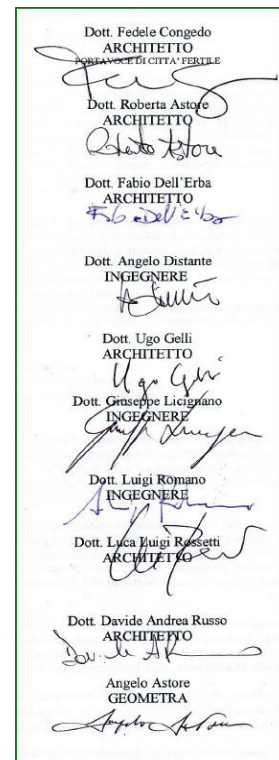 Dott. Fedele Congedo
ARCHITETTO
PORTAVOCE DI CITTA' FERTILE
Dott. Roberta Astore
ARCHITETTO
Roberta Astore
Dott. Fabio Dell'Erba
ARCHITETTO
Fabio Dell'Erba
Dott. Angelo Distante
INGEGNERE
Dott. Ugo Gelli
ARCHITETTO
Ugo Gelli
Dott. Giuseppe Licignano
INGEGNERE
Dott. Luigi Romano
INGEGNERE
Dott. Luca Luigi Rossetti
ARCHITETTO
Dott. Davide Andrea Russo
ARCHITETTO
Angelo Astore
GEOMETRA
Angelo Astore